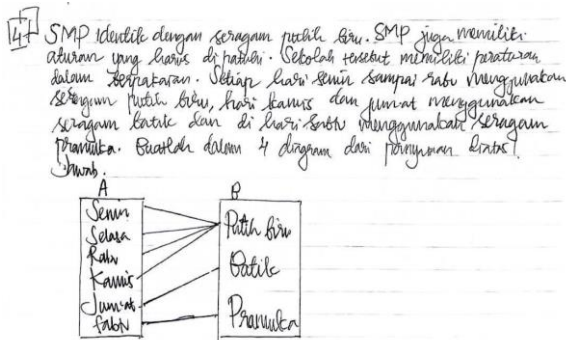 4
SMP identik dengan seragam putih biru. SMP juga memiliki
aturan yang harus di patuhi. Sekolah tersebut memiliki peraturan
dalam berpakaian. Setiap hari senin sampai rabu menggunakan
seragam putih biru, hari kamis dan jum'at menggunakan
seragam batik dan di hari sabtu menggunakan seragam
pramuka. Buatlah dalam 4 diagram dari diatas!
Jawab.
A B
Senin
Selasa
Rabu
Kamis
Jum'at
Sabtu
Putih biru
Batik
Pramuka